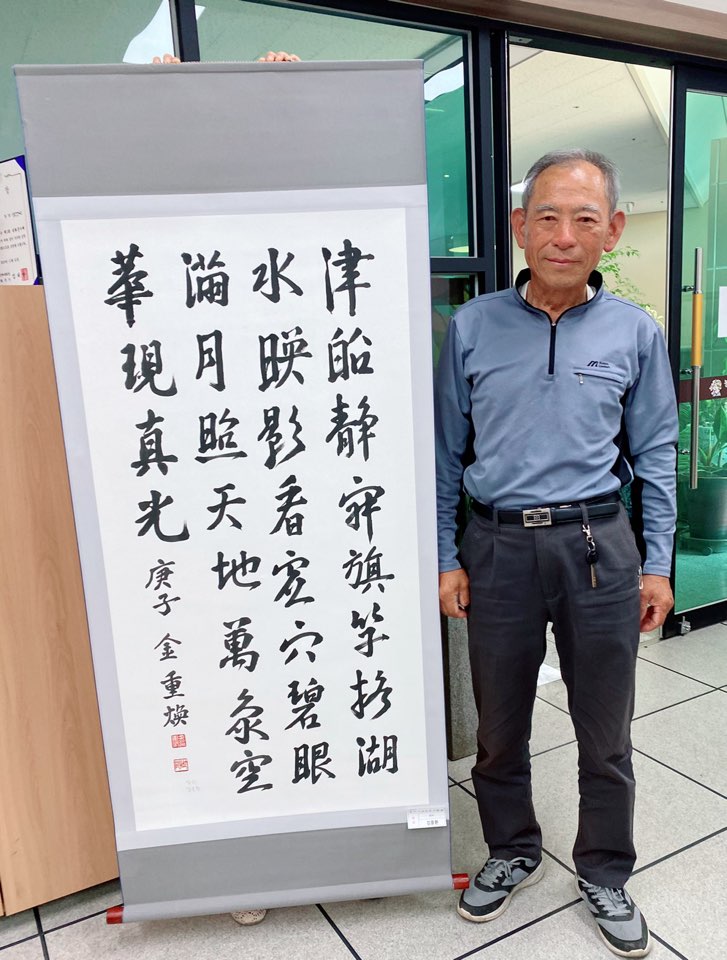 津船静寂旗竿湖
水映影看穴碧眼
滿月照天地萬象空
華現真光
庚子 金重煥
김중환